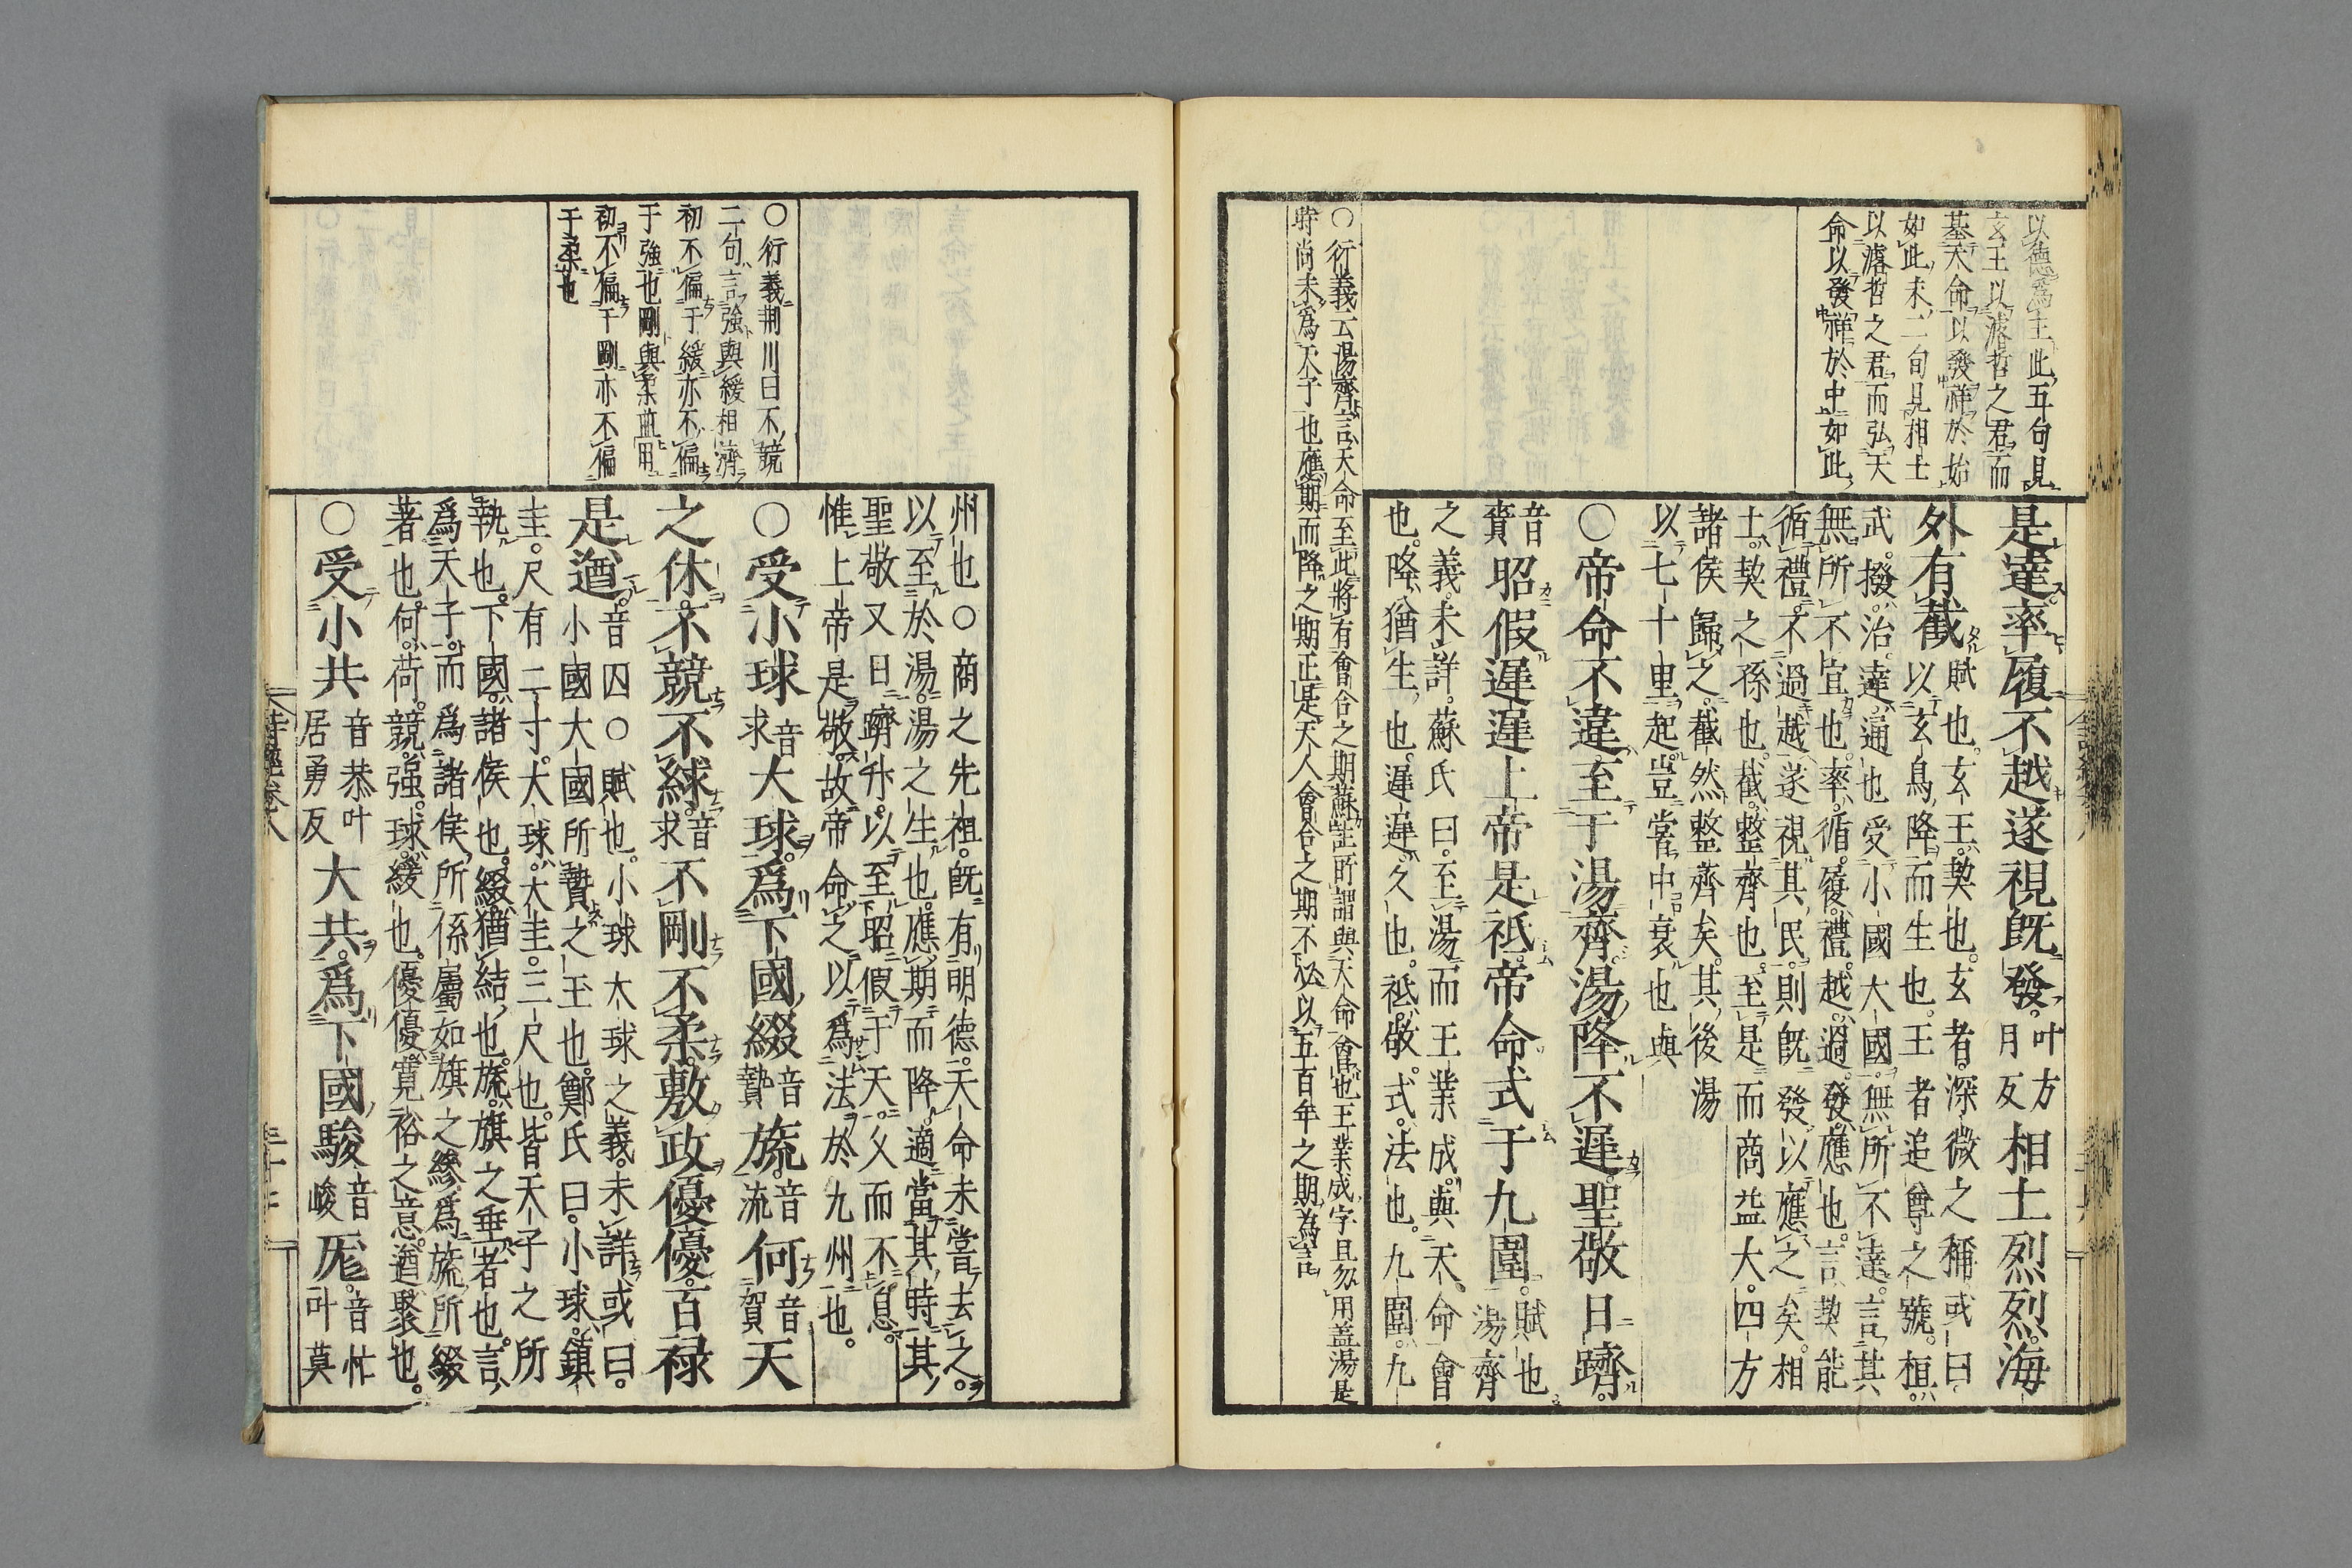 以德爲王此五句見
玄王以濬哲之君而
基天命以發祥於始
如此末二句見相土
以濬哲之君而弘天
命以發祥於中如此
是達率履不越遂視既發叶方月反相土烈烈海
外有截賦也玄王契也玄者深微之稱或曰
以玄鳥降而生也王者追尊之號桓
武撥治達通也受小國大國無所不達言其
無所不宜也率循履禮越過發應也言契能
循禮不過越遂視其民則既發以應之矣相
土契之孫也截整齊也至是而商益大四方
諸侯歸之截然整齊矣其後湯
以七十里起豈嘗中衰也與
○帝命不違至于湯齊湯降不遲聖敬日躋
音賫昭假遲遲上帝是祗帝命式于九圍賦也湯齊
之義未詳蘇氏曰至湯而王業成與天命會
也降猶生也遲遲久也祗敬式法也九圍九
○衍義云湯齊言天命至此將有會合之期蘇註所謂與天命會也王業成字且勿用蓋湯是
時尚未爲天子也應期而降之期正是天人會合之期不必以五百年之期爲言
州也○商之先祖既有明德天命未嘗去之
以至於湯湯之生也應期而降適當其時其
聖敬又日躋升以至昭假于天久而不息
惟上帝是敬故帝命之以爲法於九州也
○受小球音求大球爲下國綴音贅旒音流何音賀天
之休不競不絿音求不剛不柔敷政優優百禄
是遒音囚○賦也小球大球之義未詳或曰
小國大國所贄之玉也鄭氏曰小球鎮
圭尺有二寸大球大圭三尺也皆天子之所
執也下國諸侯也綴猶結也旒旗之垂者也言
爲天子而爲諸侯所係屬如旗之縿爲旒所綴
著也何荷競强絿緩也優優寛裕之意遒聚也
○受小共音恭叶居勇反大共爲下國駿音峻厖音忙叶莫
○衍義荆川曰不競
二句言強與緩相濟
初不偏于緩亦不偏
于強也剛與柔並用
初不偏于剛亦不偏
于柔也